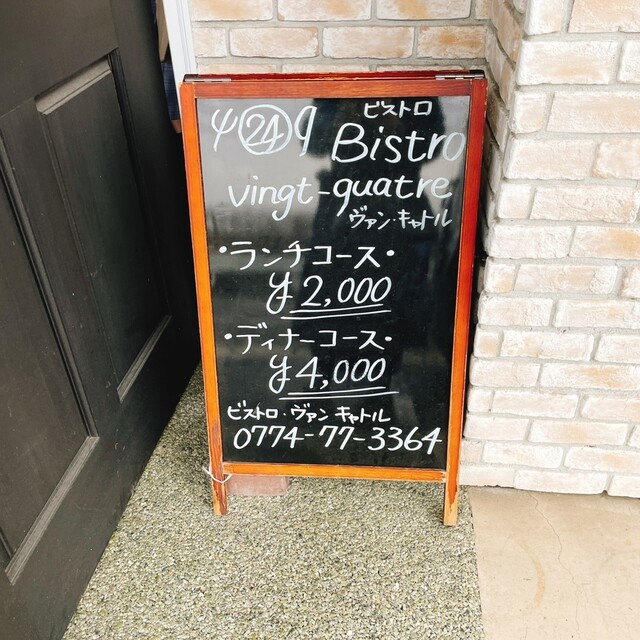 ビストロ
24 Bistro
vingt-quatre
ヴァン・キャトル
・ランチコース・
¥2,000
・ディナーコース・
¥4,000
ビストロ・ヴァンキャトル
0774-77-3364